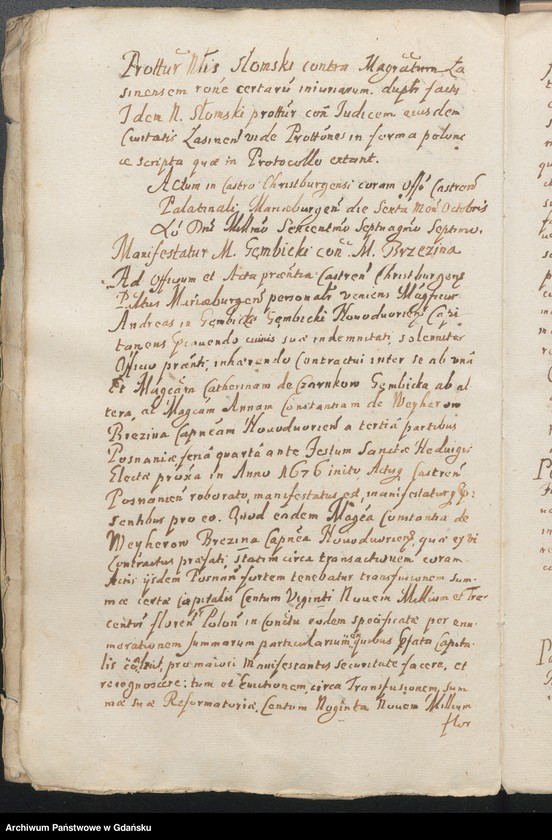 Prottur Nlis Słomski contra Magratum Ła
sinensem rone certarum iniuriarum. dupli facti
Idem N. Słomski prottur con Iudicem eiusdem
Civitatis Łasinen vide Prottones in forma polone
ce scripta quæ in Protocollo extant.
Actum in Castro Christburgensi coram Offo Castren
Palatinali Mariæburgen die Sexta Mens Octobris
Ao Dni Millmo Sexcentmo Septuagmo Septimo.
Manifestatur M. Gembicki con M. Brzezina
Ad Officium et Acta præntia Castren Christburgens
Pltus Mariæburgen personalr veniens Mageus
Andreas in Gembicka Gembicki Nowodworien Capi
taneus præuendo suæ indemnitati, solenniter
Officio prænti, inhærendo Contractui inter se ab una
Et Magcam Catherinam de Czarnkow Gembicka ab al
tera, ac Magcam Annam Constantiam de Weyherow
Brzezina Capneam Nowodworien a tertia partibus
Posnaniæ feria quarta ante Festum Sanctæ Hedwigis
Electæ proxa in Anno 1676 inito, Actisq Castren
Posnanien roborato, manifestatus est, manifestaturq
sentibus pro eo. Quod eadem Magca Constantia de
Weyherow Brzezina Capnea Nowodworien, quæ ex vi
Contractus præfati statim circa transactionem coram
Actis ijsdem Posnan fortem tenebatur transfusionem sum
mæ certæ Capitalis Centum Viginti Novem Millium et Tre
centor floren Polon in Contu eodem specificatæ per enu
morationem summarum particularium quibus Capita
lis, pro maiori Manifestantis securitate facere, et
recognoscere: tum et Evictionem circa Transfusionem, sum
mæ suæ Reformatoriæ, Centum Viginta Novem Millium
flor
Archiwum Państwowe w Gdańsku